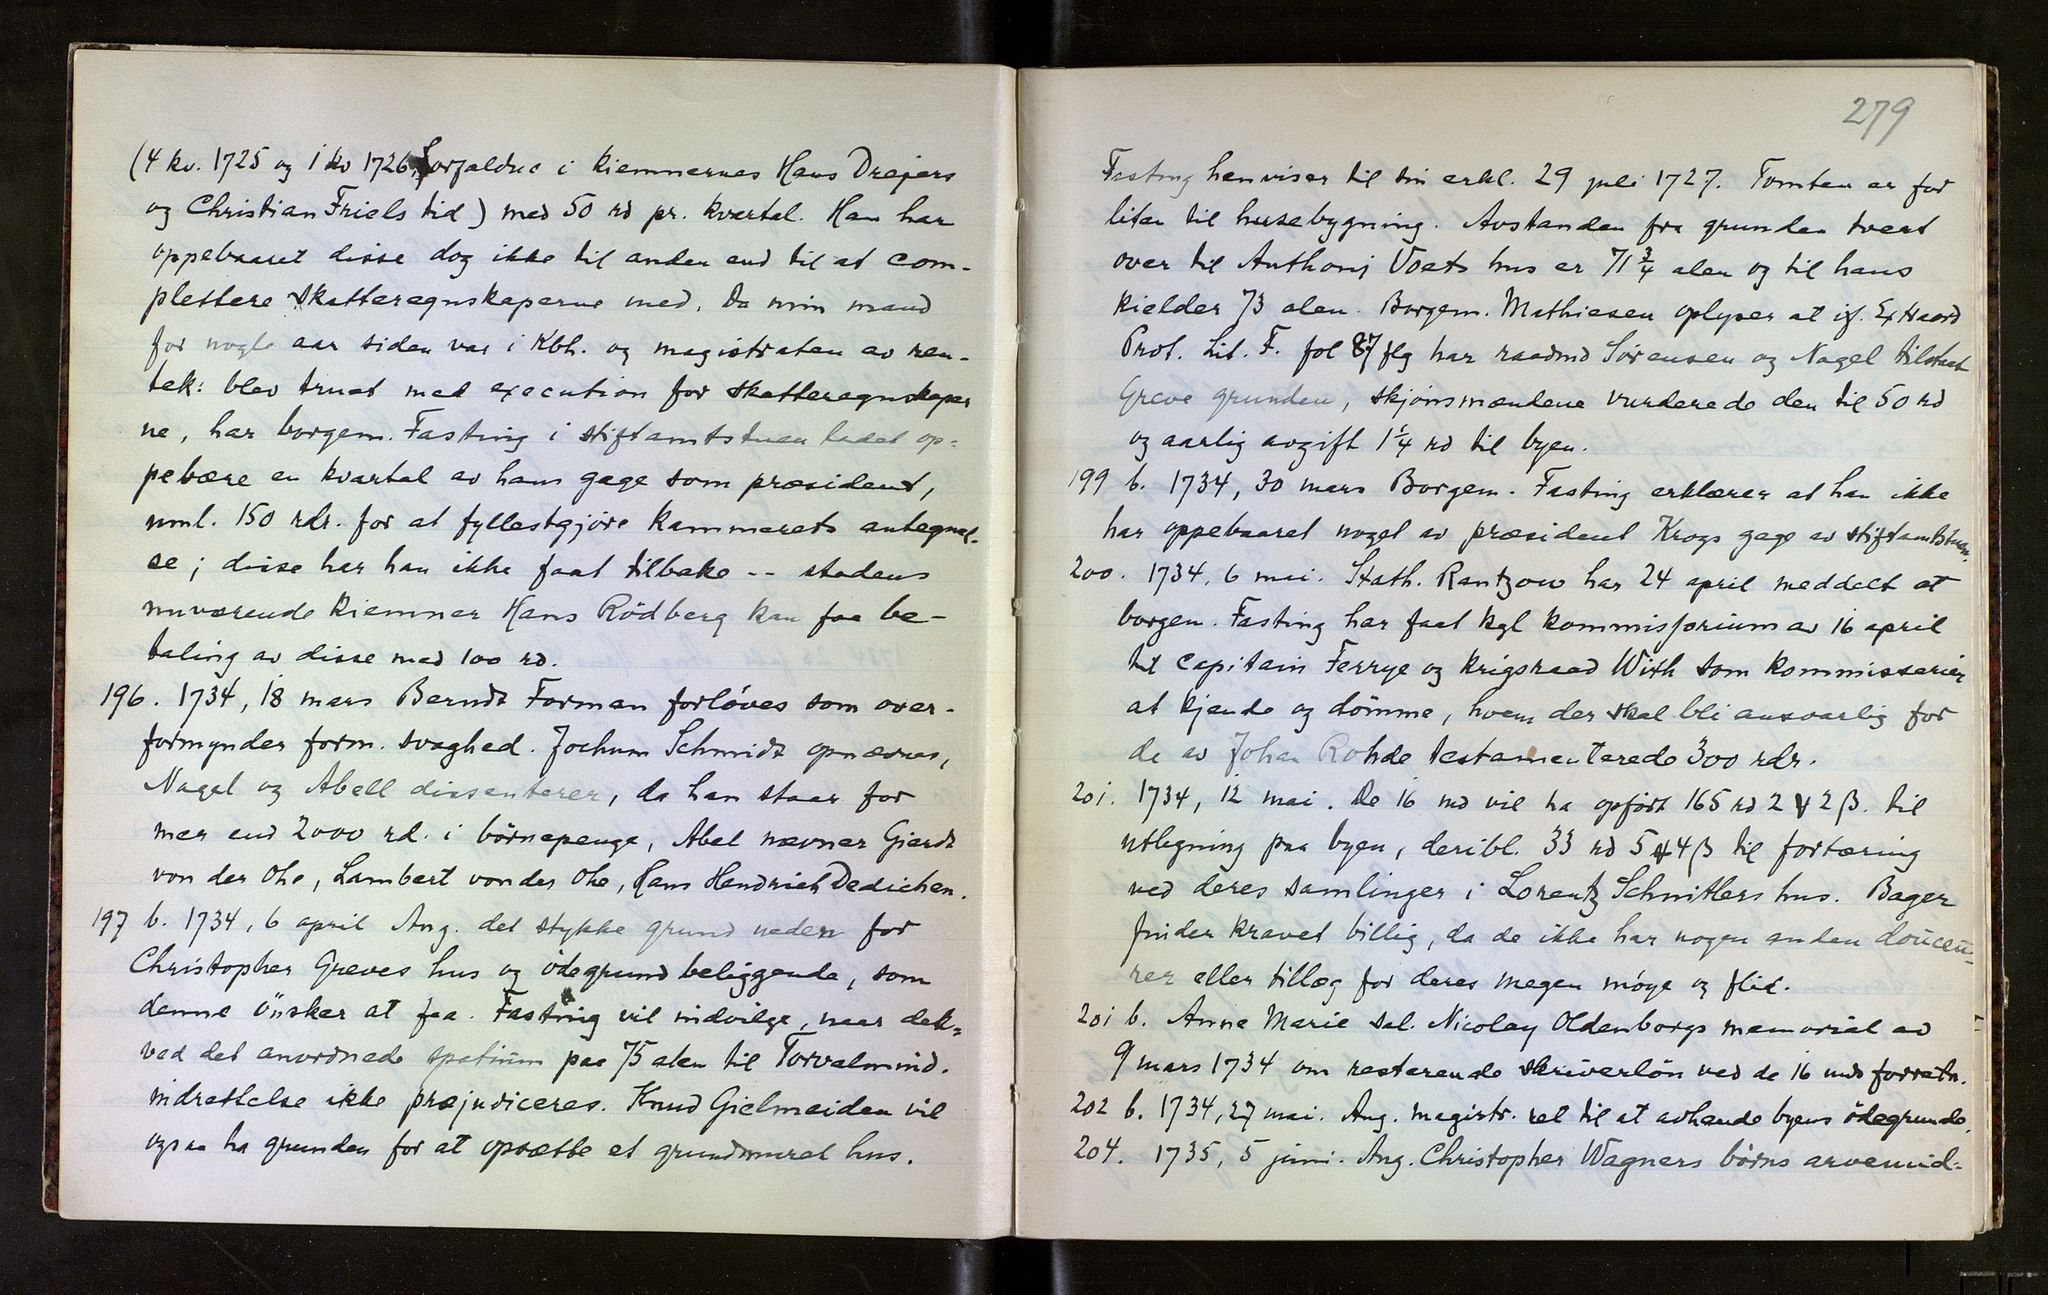 (4 kv. 1725 og 1 kv 1726, forfaldne i kiemnernes Hans Drejers
og Christian Friels tid) med 50 rd pr. kvartal. Han har
oppebaaret disse dog ikke til anden end til at com-
plettere skatteregnskaperne med. Da min mand
for nogle aar siden var i Kbh. og magistraten av ren-
tek: blev truet med execution for skatteregnskaper
ne, har borgem. Fasting i stiftamtstuen ladet op-
pebære en kvartal av hans gage som præsident,
nml. 150 rdr. for at fyllestgjöre kammerets antegnel-
se; disse har han ikke faat tilbake -- stadens
nuværende kiemner Hans Rödberg kan faa be-
taling av disse med 100 rd.
196. 1734, 18 mars Berndt Forman forlöves som over-
formynder form. svaghed. Jochum Schmidt opnævnes,
Nagel og Abell dissenterer, da han staar for
mer end 2000 rd. i börnepenge, Abel nævner Gierdt
von der Ohe, Lambert von der Ohe, Hans Hendrich Dedichen.
197 b. 1734, 6 april Ang. det stykke grund neden for
Christopher Greves hus og ödegrund beliggende, som
denne önsker at faa. Fasting vil indvilge, naar det
ved det anordnede spatium paa 75 alen til Torvalmind.
indrettelse ikke præjudiceres. Knud Gielmeiden vil
ogsaa ha grunden for at opsætte et grundmuret hus.
279
Fasting henviser til sin erkl. 29 juli 1727. Tomten er for
liten til husebygning. Avstanden fra grunden tvert
over til Anthonj Voets hus er 71 3/4 alen og til hans
kielder 73 alen. Borgem. Mathiesen oplyser at if. Extraord
Prot. Lit. F. fol 87 flg har raadmd Sørensen og Nagel tilstaat
Greve grunden, skjönsmændene vurderede den til 50 rd
og aarlig avgift 1 1/4 rd til byen.
199 b. 1734, 30 mars Borgem. Fasting erklærer at han ikke
har oppebaaret noget av præsident Krogs gage av stiftamtstuen.
200. 1734, 6 mai. Stath. Rantzow har 24 april meddelt at
borgem. Fasting har faat kgl kommissorium av 16 april
til Capitain Ferrye og krigsraad With som kommissærier
at kjende og dömme, hvem der skal bli ansvarlig for
de av Johan Rohde testamenterede 300 rdr.
201. 1734, 12 mai. De 16 md vil ha opfört 165 rd 2 ℳ 2 β. til
utlegning paa byen, deribl. 33 rd 5 ℳ 4 β til fortæring
ved deres samlinger i Lorentz Schnitlers hus. Bager
finder kravet billig, da de ikke har nogen anden douceu-
rer eller tillæg for deres megen möye og flid.
201 b. Anne Marie sal. Nicolay Oldenborgs memorial av
9 mars 1734 om resterende skriverlön ved de 16 mds forretn.
202 b. 1734, 27 mai. Ang. magistr. ret til at avhænde byens ödegrunde.
204. 1735, 5 juni. Ang. Christopher Wagners börns arvemid-